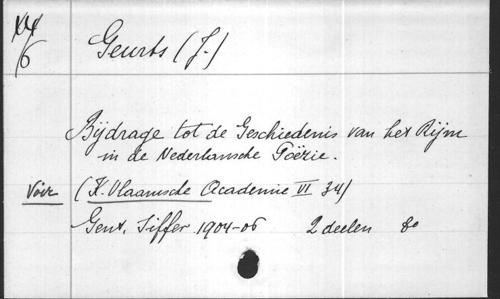 Geurts (J.)
6
Bijdrage tot de Geschiedenis van het Rijm
in de Nederlansche Poëzie.
Voir (K. Vlaamsche Academie VI 34)
Gent, Siffer 1904-06 2 deelen 8o